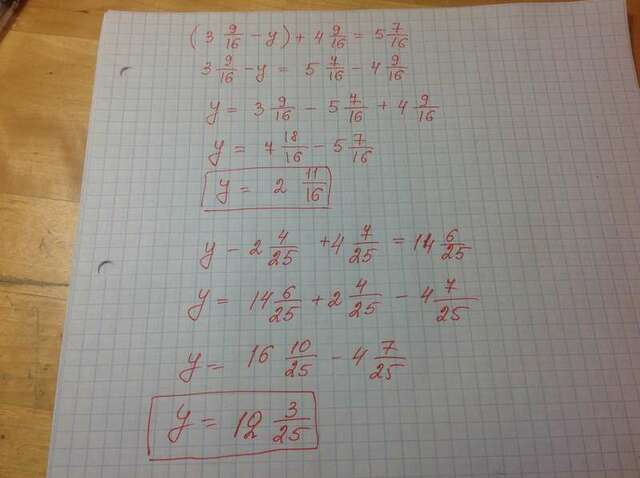 (3 9/16 - y) + 4 9/16 = 5 7/16
3 9/16 - y = 5 7/16 - 4 9/16
y = 3 9/16 - 5 7/16 + 4 9/16
y = 7 18/16 - 5 7/16
y = 2 11/16
y - 2 4/25 + 4 7/25 = 14 6/25
y = 14 6/25 + 2 4/25 - 4 7/25
y = 16 10/25 - 4 7/25
y = 12 3/25